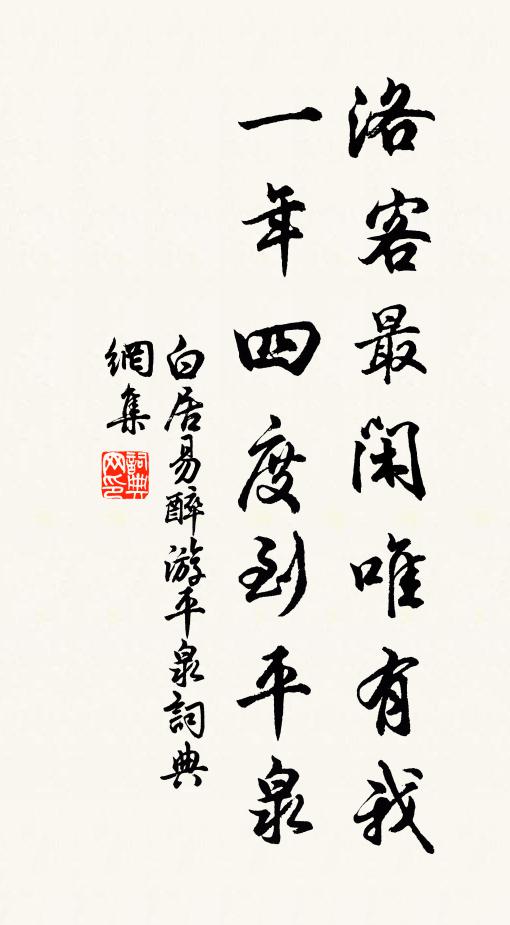 洛客最閑唯有我
一年四度到平泉
白居易醉游平泉詞典
網集
詞典
网印